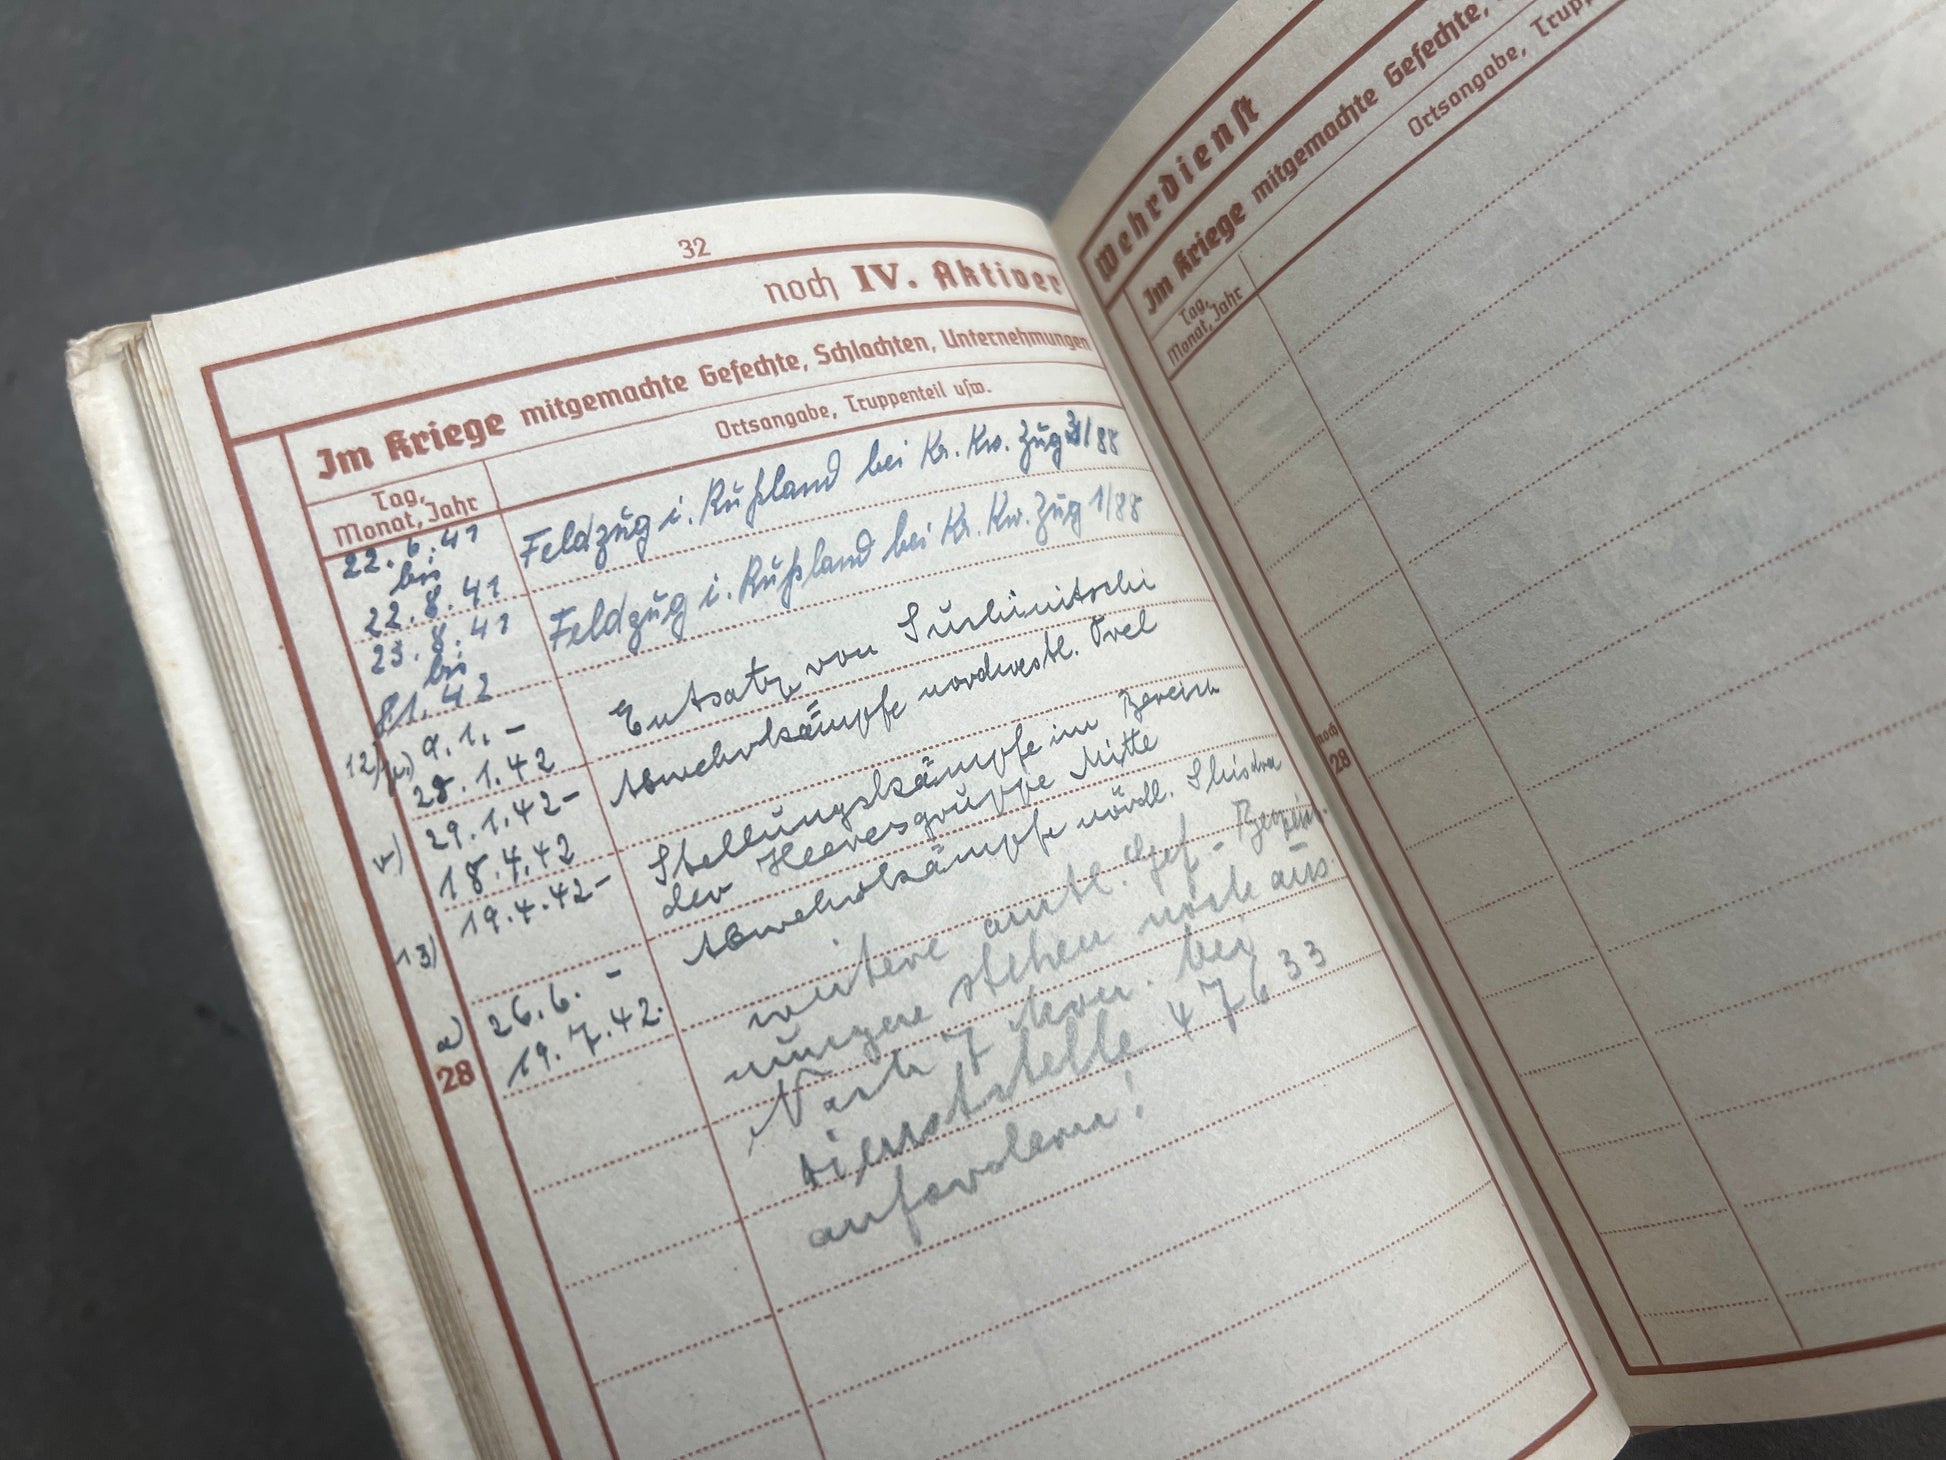 32
noch IV. Aktiver
Im Kriege mitgemachte Gefechte, Schlachten, Unternehmungen
Tag,
Monat, Jahr
Ortsangabe, Truppenteil usw.
22. 6. 41
bis
22. 8. 41
Feldzug i. Rußland bei Kr. Kw. Zug /88
23. 8. 41
bis
8 1. 42
Feldzug i. Rußland bei Kr. Kw. Zug 1/88
12) 9. 1. –
28. 1. 42
Entsatz von Suchinitschi
29. 1. 42 –
18. 4. 42
Abwehrkämpfe nordwestl. Orel
13)
19. 4. 42 –
Stellungskämpfe im Bereich
der Heeresgruppe Mitte
a) 26. 6. –
19. 7. 42.
Abwehrkämpfe nördl. Shisdra
weitere amtl. Gef.-
stehen noch aus
Nach 7 bei
Dienststelle 47633
anfordern!
28
Wehrdienst
Im Kriege mitgemachte Gefechte,
Tag,
Monat, Jahr
Ortsangabe,
noch
28